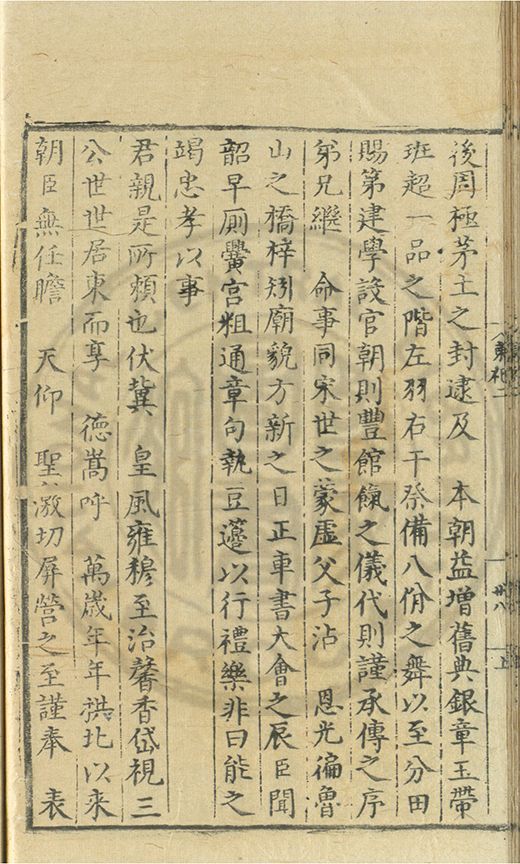 後周極茅土之封逮及　本朝益增舊典銀章玉帶
班超一品之階左羽右干祭備八佾之舞以至分田
賜第建學設官朝則豐館餼之儀代則謹承傳之序
弟兄繼　命事同宋世之蒙虛父子沾　恩光徧魯
山之橋梓矧廟貌方新之日正車書大會之辰臣聞
韶早厠黌宮粗通章句執豆籩以行禮樂非曰能之
竭忠孝以事
君親是所頼也伏冀　皇風雍穆至治馨香岱視三
公世世居東而享　德嵩呼　萬歲年年拱北以來
朝臣無任瞻　天仰　聖激切屏營之至謹奉　表
卅八
上